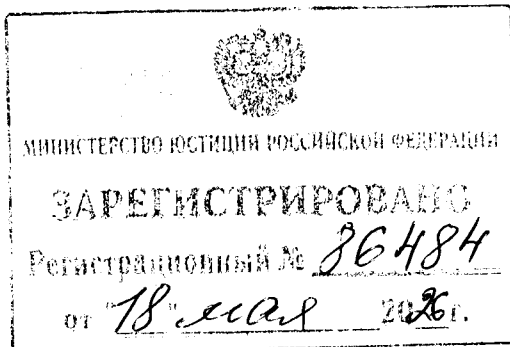 МИНИСТЕРСТВО ЮСТИЦИИ РОССИЙСКОЙ ФЕДЕРАЦИИ
ЗАРЕГИСТРИРОВАНО
Регистрационный № 86484
от "18" мая 2026 г.